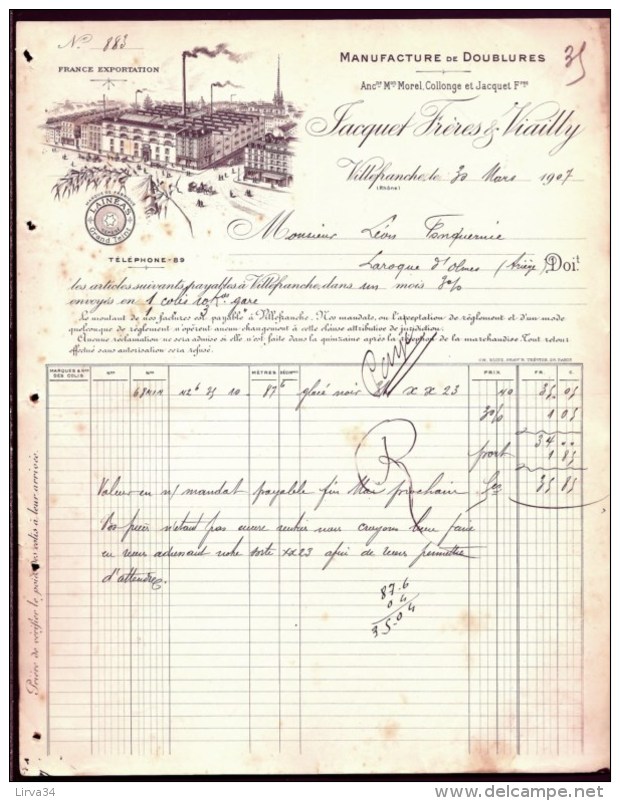 No 883
FRANCE EXPORTATION
MANUFACTURE DE DOUBLURES
35
Ancne Mon Morel, Collonge et Jacquet Fres
Jacquet Frères & Viailly
Villefranche, le 30 Mars 1907
(RHÔNE)
MARQUE DE FABRIQUE
LAINEAS
Grand Teint
TÉLÉPHONE-89
Monsieur Léon Fonquernie
Laroque d'Olmes (Ariège) Doit
les articles suivants payables à Villefranche, dans un mois 3%
envoyés en 1 colis 10 Kos gare
Le montant de nos factures est payable à Villefranche. Nos mandats, ou l'acceptation de règlement et d'un mode
quelconque de règlement n'opèrent aucun changement à cette clause attributive de juridiction.
Aucune réclamation ne sera admise si elle n'est faite dans la quinzaine après la réception de la marchandise. Tout retour
effectué sans autorisation sera refusé.
MARQUES & Nos DES COLIS Nos Nos MÈTRES PRIX FR. C.
42 6 35 10 87 6 glacé noir x x 23 40 35.05
3% 1 05
34 ..
port 1 85
35 85
Valeur en n/ mandat payable fin Mai prochain
Vos pièces n'étant pas encore rentrées nous croyons bien faire
en vous adressant notre sorte xx23 afin de vous permettre
d'attendre.
87.6
0 4
35.04
Prière de vérifier le poids des colis à leur arrivée.
Lirva34
www.delcampe.net